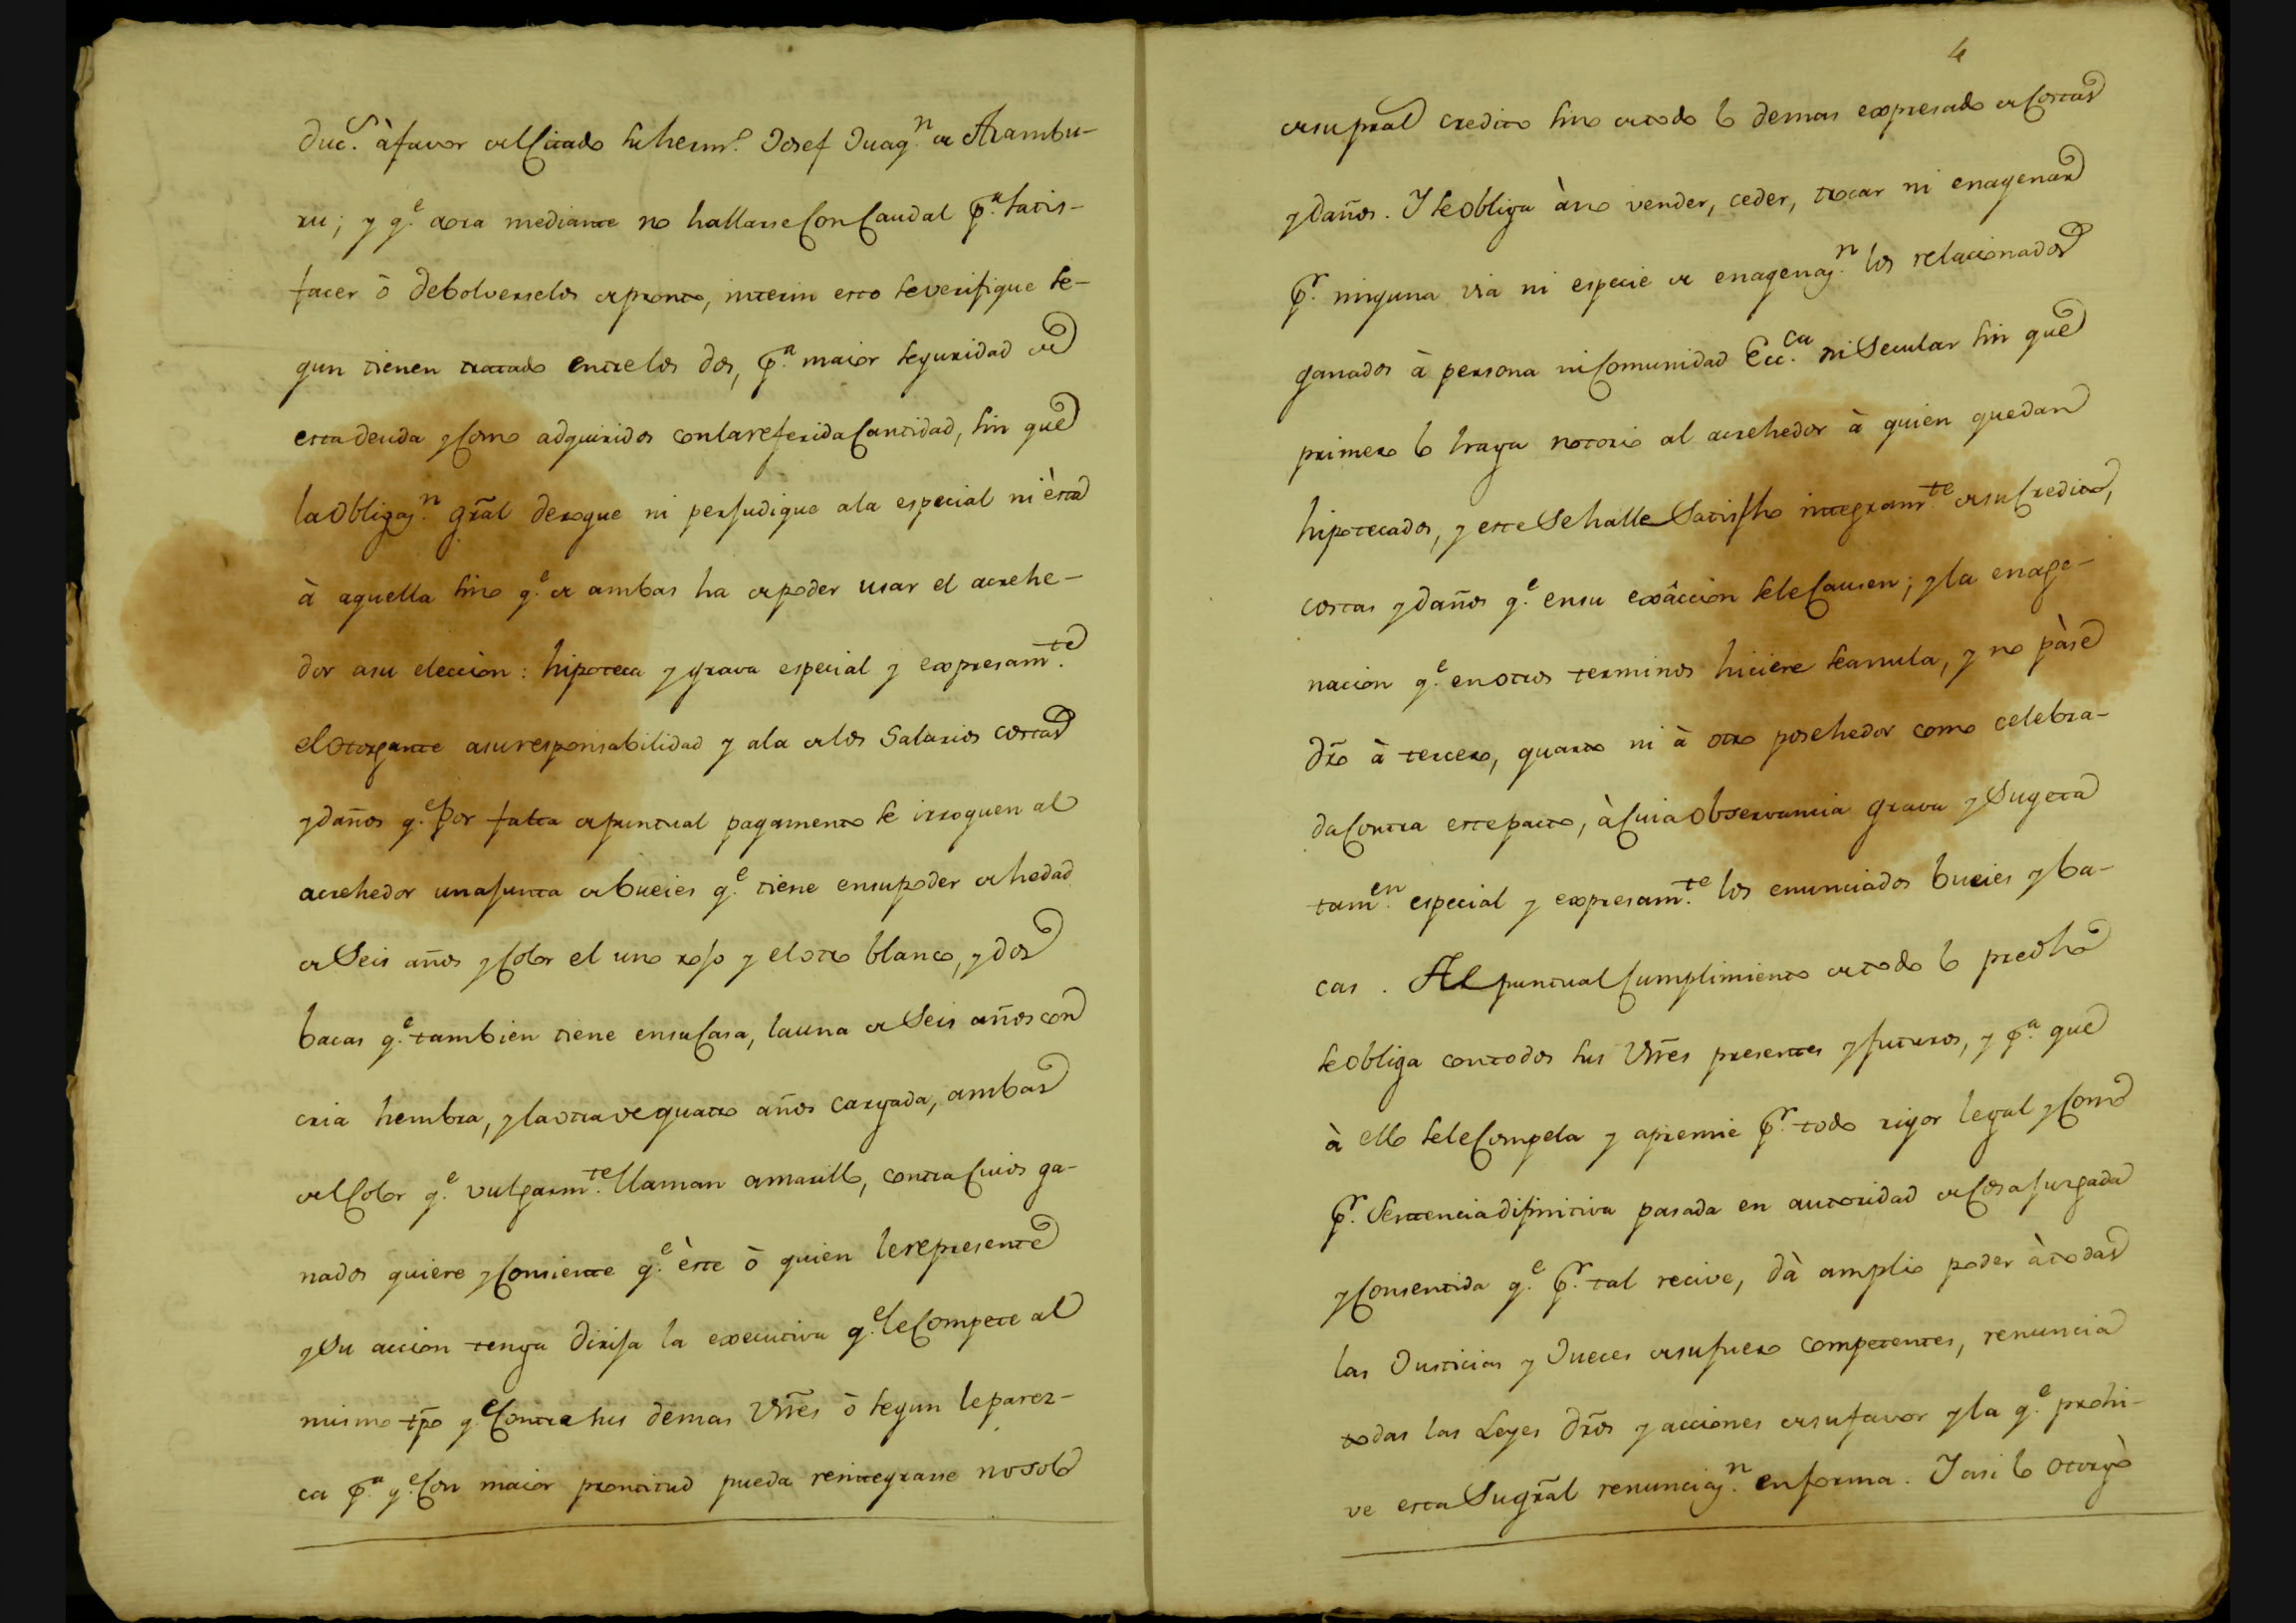 duc.s à favor del Citado su herm.o Josef Juaq.n de Arambu-
ru; y q.e aora mediante no hallarse Con Caudal p.a satis-
facer ò debolverselos de pronto, interin esto se verifique se-
gun tienen tratado entre los dos, p.a maior seguridad de
esta deuda y Como adquiridos con la referida Cantidad, sin que
la Obligaz.n gral derogue ni perjudique a la especial ni èsta
à aquella sino q.e de ambas ha de poder usar el acrehe-
dor a su eleccion: hipoteca y grava especial y expresam.te
el Otorgante a su responsabilidad y a la de los Salarios costas
y daños q.e Por falta de puntual pagamento se irroguen al
acrehedor una junta de bueies q.e tiene en su poder de hedad
de Seis años y Color el uno rojo y el otro blanco, y dos
bacas q.e tambien tiene en su Casa, la una de Seis años con
cria hembra, y la otra de quatro años cargada, ambas
del Color q.e vulgarm.te llaman amarillo, contra Cuios ga-
nados quiere y Consiente q.e èste ò quien le represente
y Su accion tenga dirija la executiva q.e le Compete al
mismo tpo q.e Contra sus demas Vns ò segun le parez-
ca p.a q.e Con maior prontitud pueda reintegrarse no solo
4
de su pral credito sino de todo lo demas expresado de Costas
y daños. Y se obliga à no vender, ceder, trocar ni enagenar
p.r ninguna via ni especie de enagenaz.n los relacionados
ganados à persona ni Comunidad Ecc.ca ni Secular sin que
primero lo haga notorio al acrehedor à quien quedan
hipotecados, y este Se halle Satisfho integram.te de su Credito,
costas y daños q.e en su exâccion se le Causen; y la enage-
nacion q.e en otros terminos hiciere sea nula, y no pàse
dro à tercero, quarto ni à otro posehedor como celebra-
da Contra este pacto, à Cuia Observancia grava y Sugeta
tam.en especial y expresam.te los enunciados bueies y ba-
cas. Al puntual Cumplimiento de todo lo predho
se obliga con todos sus Vnes presentes y futuros, y p.a que
à ello se le Compela y apremie p.r todo rigor legal y Como
p.r Sentencia difinitiva pasada en autoridad de Cosa juzgada
y Consentida q.e p.r tal recive, dà amplio poder à todas
las Justicias y Jueces de su fuero competentes, renuncia
todas las Leyes dros y acciones de su favor y la q.e prohi-
ve esta Su gral renunciaz.n en forma. Y asi lo otorgò